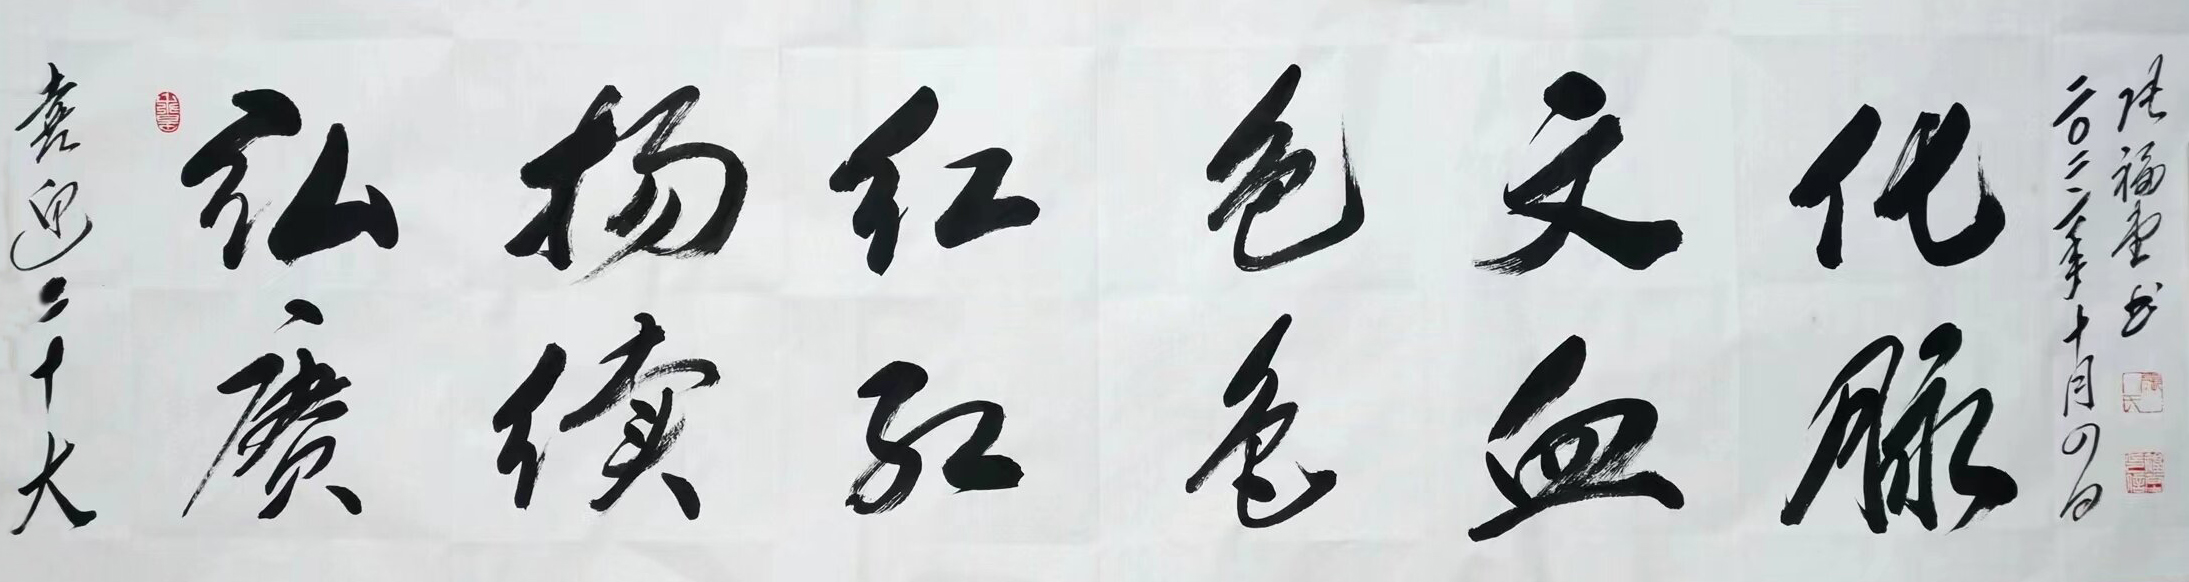 喜迎二十大
弘扬红色文化
赓续红色血脉
二〇二二年十月四日
张福堂书